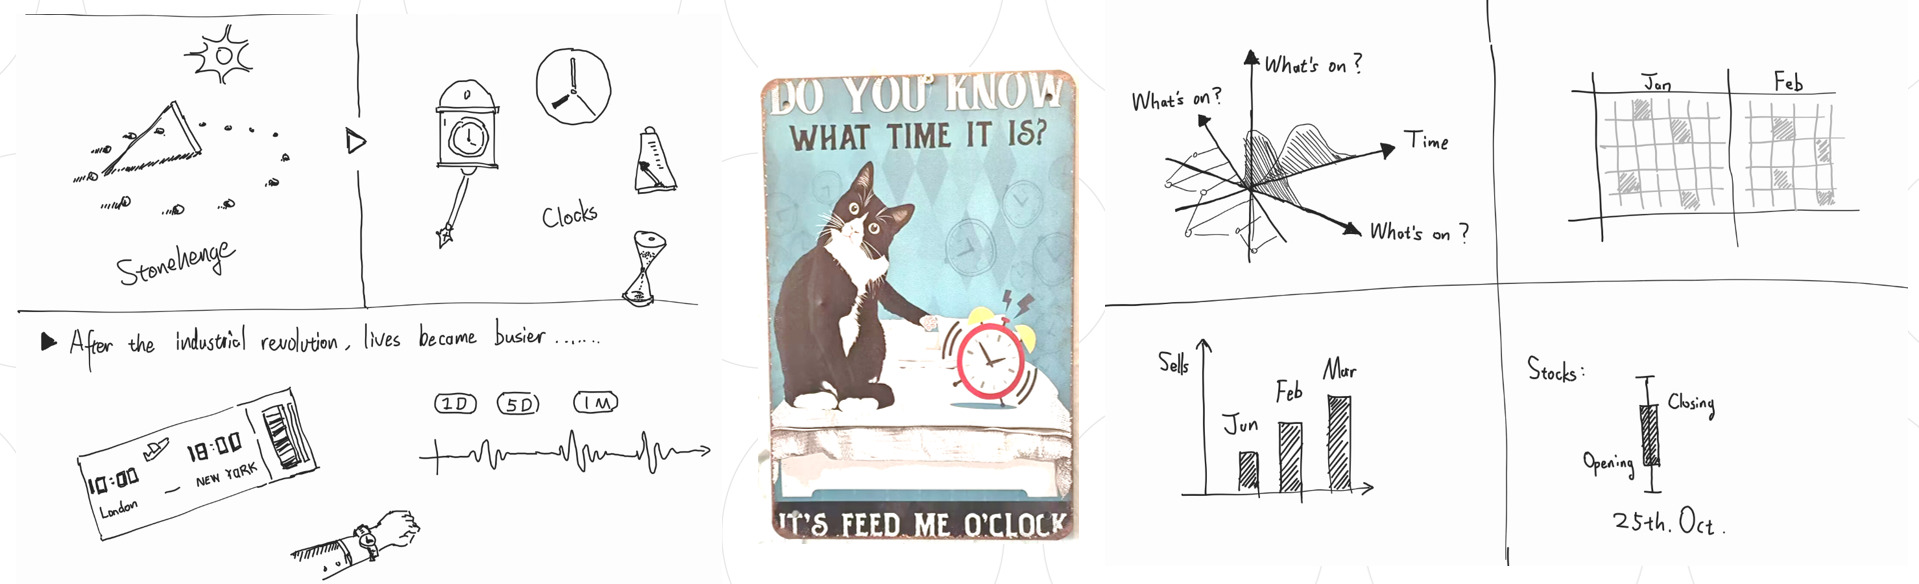 Stonehenge
Clocks
After the industrial revolution, lives become busier ......
10:00
18:00
London
—
NEW YORK
1D
5D
1M
DO YOU KNOW
WHAT TIME IT IS?
IT'S FEED ME O'CLOCK
What's on?
What's on?
Time
What's on?
Jan
Feb
Sells
Jan
Feb
Mar
Stocks:
Closing
Opening
25th. Oct.